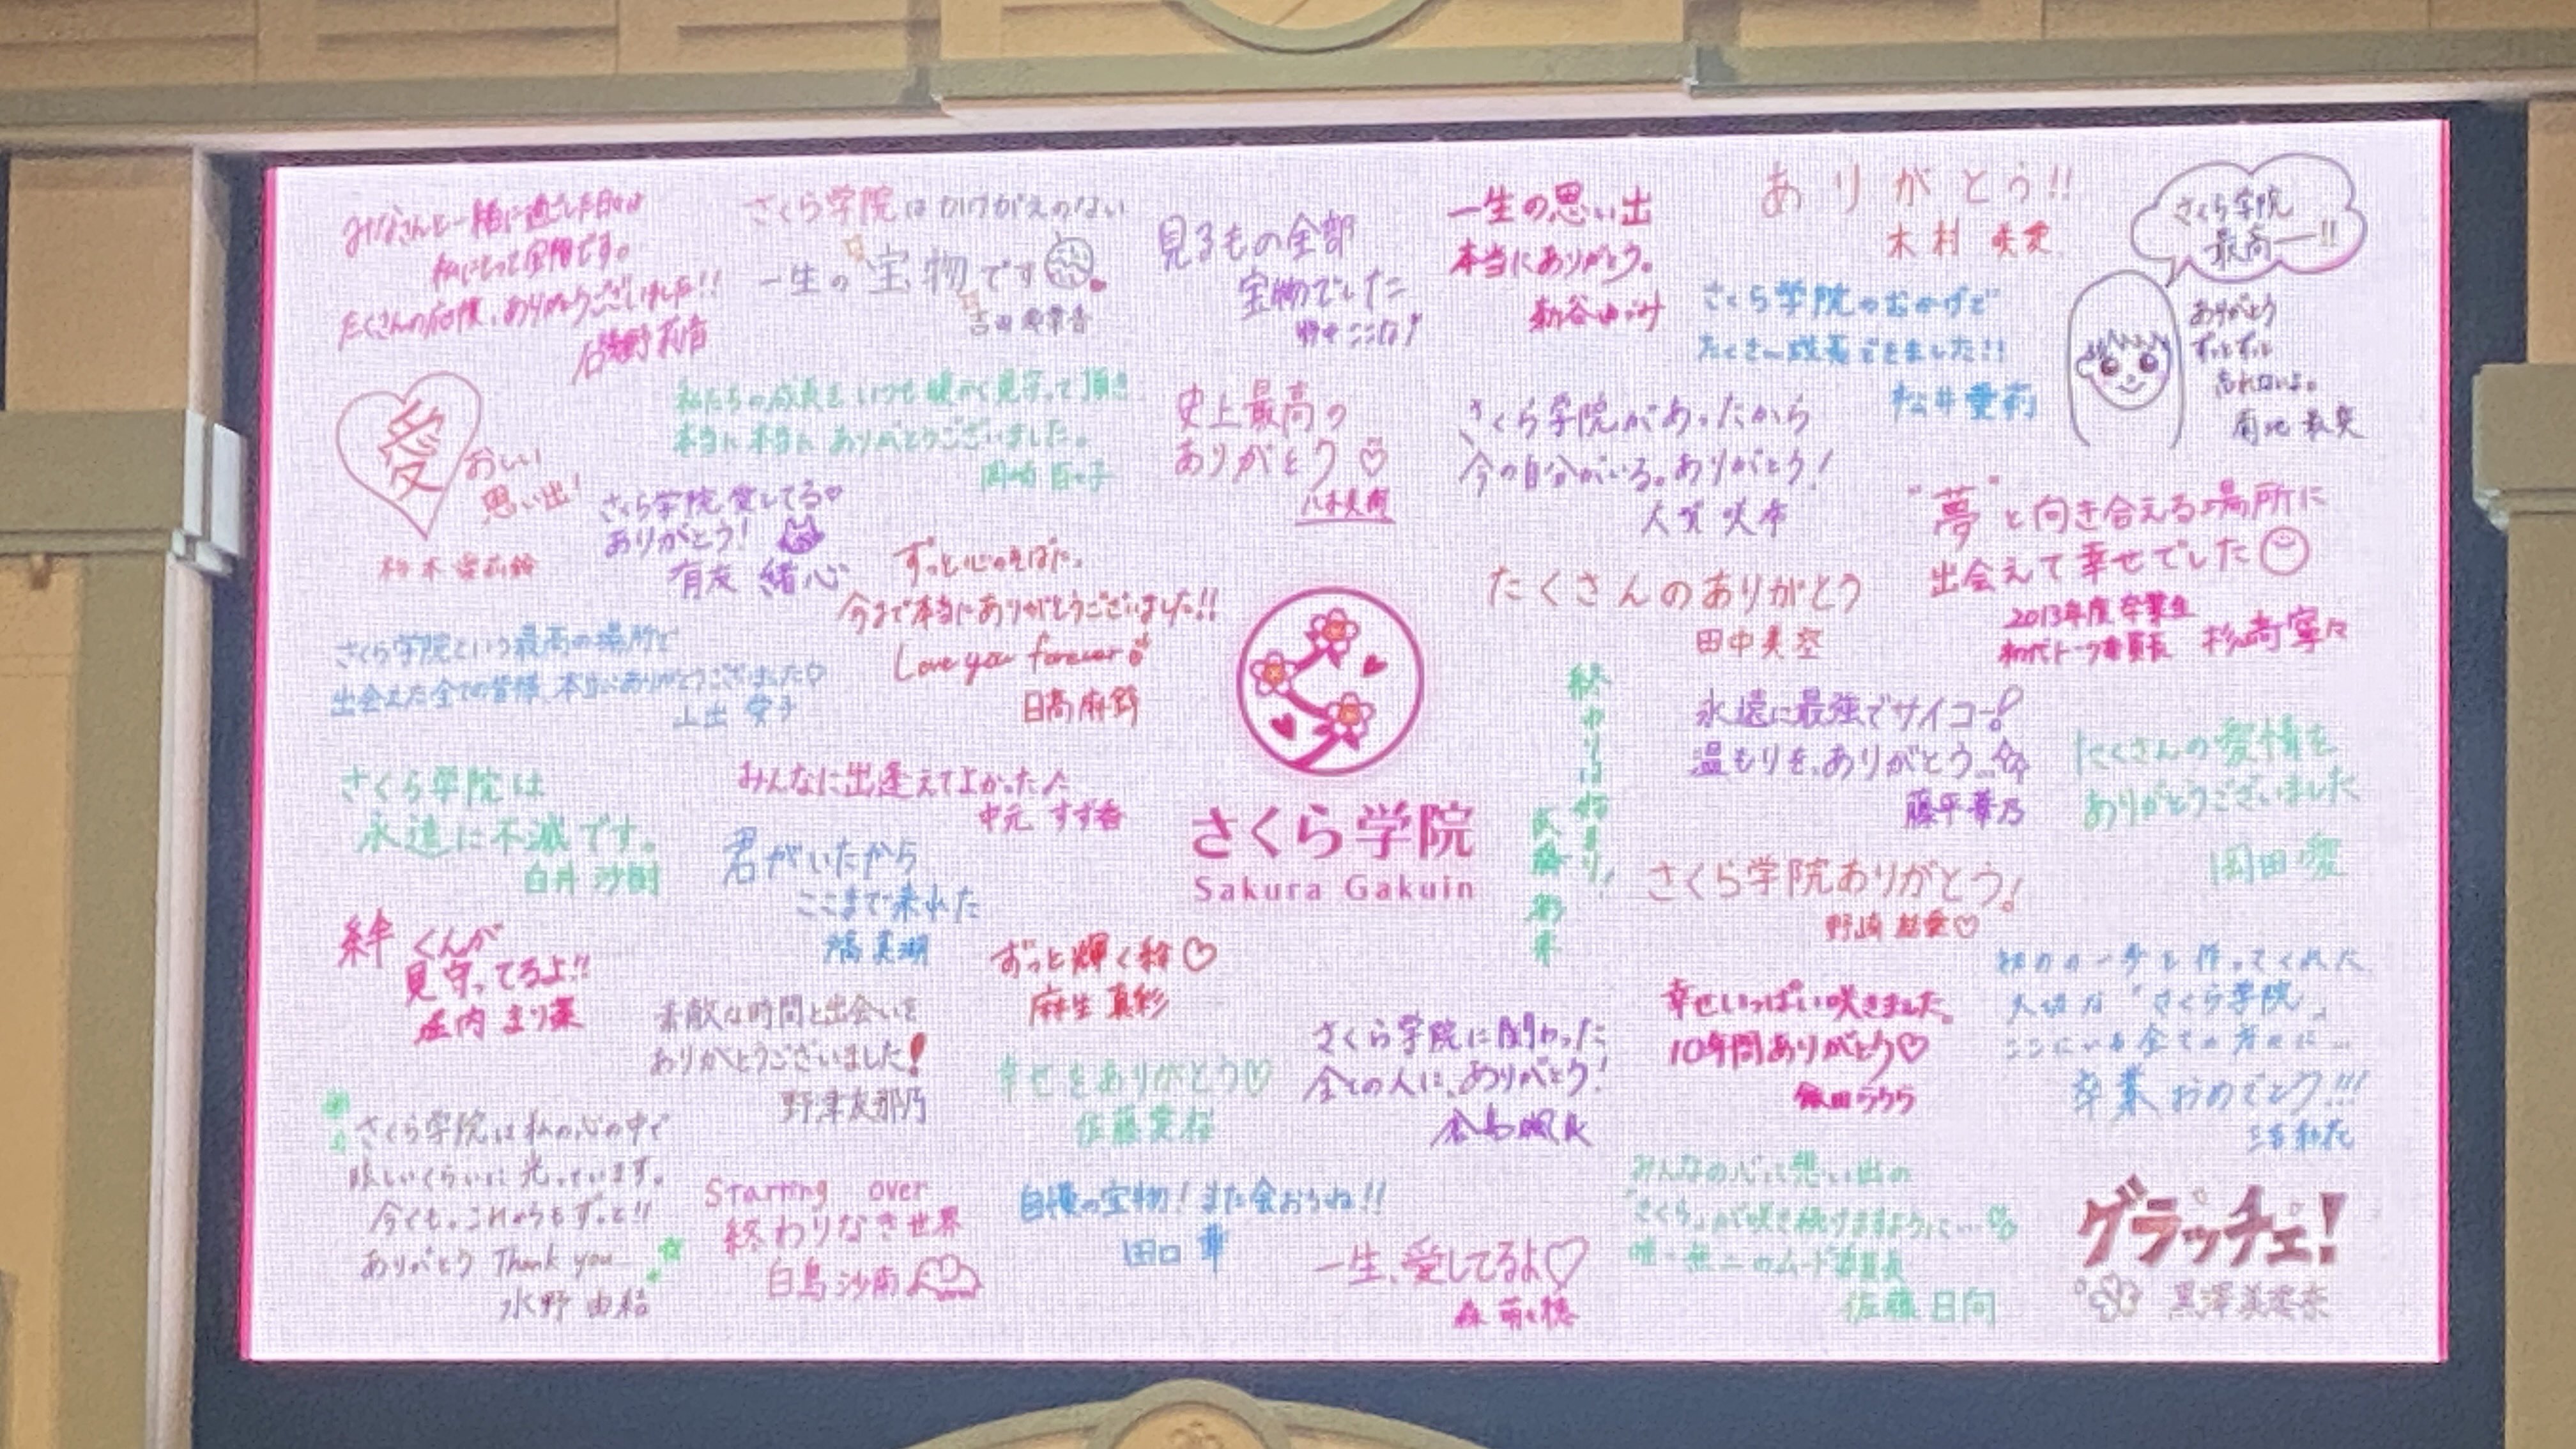 みなさんと一緒に過ごした日々は
私にとって宝物です。
たくさんの応援、ありがとうございました!!
さくら学院はかけがえのない
一生の宝物です
吉田爽葉香
見るもの全部
宝物でした
野中ここな!
一生の思い出
本当にありがとう。
新谷ゆづみ
ありがとう!!
木村 咲愛
さくら学院のおかげで
たくさん成長できました!!
松井愛莉
さくら学院
最高ー!!
ありがとう
ずっとずっと
忘れないよ。
菊地 最愛
愛おしい
思い出!
私たちの成長をいつも暖かく見守って頂き
本当に本当にありがとうございました。
岡崎 百々子
さくら学院愛してる♡
ありがとう!
有友 緒心
史上最高の
ありがとう♡
八木美樹
さくら学院があったから
今の自分がいる。ありがとう!
大賀 咲希
"夢"と向き合える場所に
出会えて幸せでした
2013年度卒業生
初代トーク委員長 杉崎寧々
ずっと心のそばに。
今まで本当にありがとうございました!!
Love you forever
日髙麻鈴
たくさんのありがとう
田中美空
さくら学院という最高の場所で
出会えた全ての皆様、本当にありがとうございました♡
山出 愛子
さくら学院は
永遠に不滅です。
白井 沙樹
みんなに出逢えてよかった
中元 すず香
君がいたから
ここまで来れた
さくら学院
Sakura Gakuin
終わりは始まり!
永遠に最強でサイコー!
温もりを、ありがとう…☆
藤平華乃
たくさんの愛情を
ありがとうございました
岡田 愛
さくら学院ありがとう!
野崎 結愛♡
絆くんが
見守ってるよ!!
ずっと輝く絆♡
麻生 真彩
素敵な時間と出会いを
ありがとうございました!
野津友那乃
幸せをありがとう♡
さくら学院に関わった
全ての人に、ありがとう!
倉島颯良
幸せいっぱい咲きました。
10年間ありがとう♡
飯田らうら
大切な「さくら学院」
卒業おめでとう!!!
さくら学院は私の心の中で
眩しいくらいに光っています。
今でも。これからもずっと!!
ありがとう Thank you
水野 由結
Starting over
終わりなき世界
白鳥沙南
自慢の宝物!また会おうね!!
田口 華
一生、愛してるよ♡
森 萌々穂
みんなの心に思い出の
"さくら"が咲き続けますように…
唯一無二のムード委員長
佐藤 日向
グラッチェ!
黒澤美澪奈